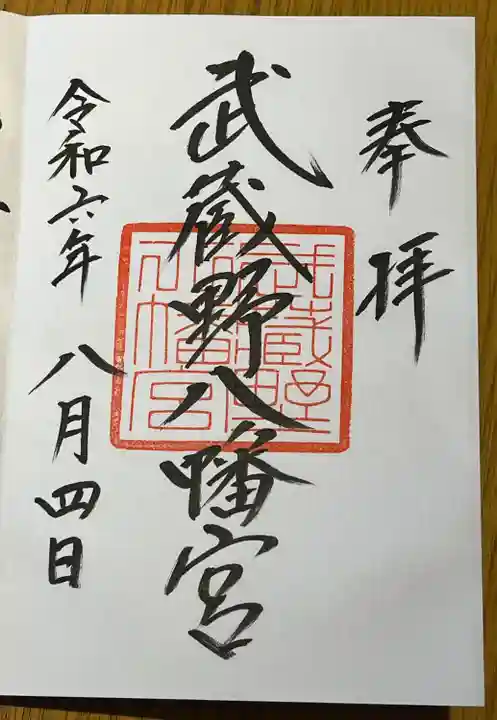 奉拝
武蔵野八幡宮
武蔵野八幡宮
令和六年八月四日